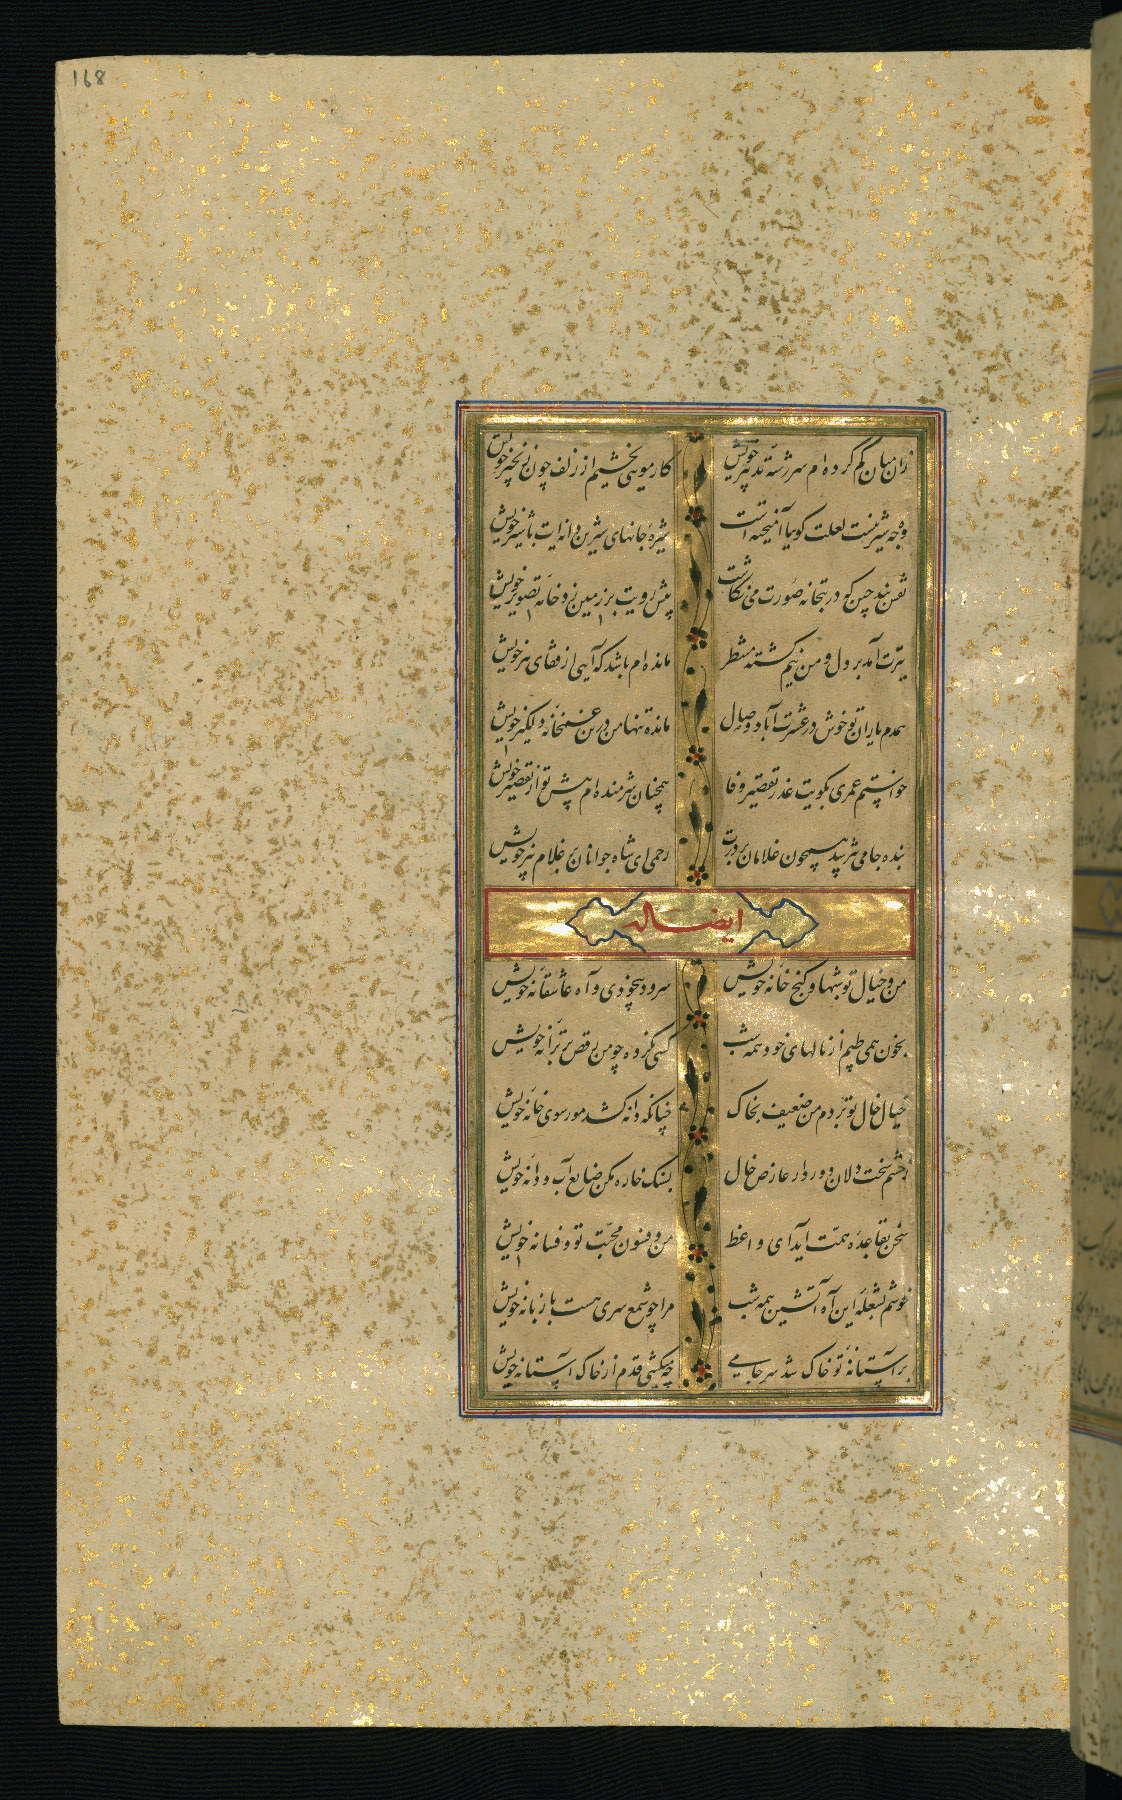 168
زان میان گم کرده ام سررشته تدبیر خویش کار مویی می کشم از زلف چون زنجیر خویش
وه چه شیرینست لعلت گویا آمیخته است شیره جانهای شیرین دایه ات با شیر خویش
نقش بند چین که در بتخانه صورت می نگاشت پیش رویت بر زمین زد خامه تصویر خویش
تیرت آمد بر دل و من نیم کشته منتظر مانده ام باشد که آیی از قفای تیر خویش
همدم یاران تو خوش در عشرت آباد وصال مانده تنها من درین غمخانه دلگیر خویش
خواستم عمری بکویت عذر تقصیر وفا همچنان شرمنده ام پیش تو از تقصیر خویش
بنده جامی شد پیر همچون غلامان بر درت رحمی ای شاه جوانان بر غلام پیر خویش
ایضا له
من و خیال تو شبها و کنج خانه خویش سرود بیخودی و آه عاشقانه خویش
بخون همی طپم از نالهای خود همه شب کسی نکرده چو من رقص بر ترانه خویش
خیال خال تو بردم من ضعیف بخاک چنانکه دانه کشد مور سوی خانه خویش
بچشم سخت دلان دور دار عارض و خال بسنگ خاره مکن ضایع آب و دانه خویش
سخن بقاعده همت آید ای واعظ من و فنون محبت تو و فسانه خویش
خوشم بشعله این آه آتشین همه شب مرا چو شمع سری هست با زبانه خویش
بر آستانه تو خاک شد سر جامی چه میکشی قدم از خاک آستانه خویش